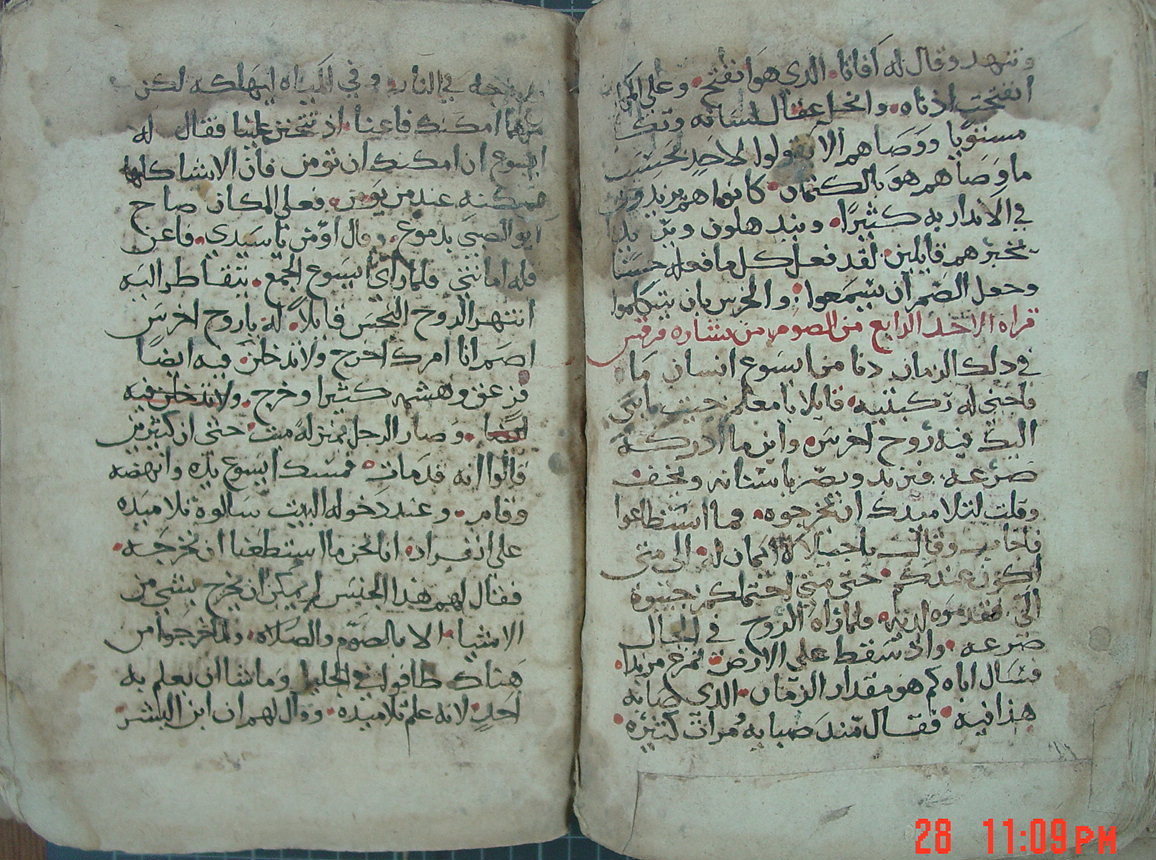 وتنهد وقال له افاتا الدي هو انفتح وعلي المكان
انفتحت ادناه وانحل عقال لسانه وتكلم
مستقيما ووصاهم الا يقولوا لاحد بحسب
ما وصاهم هو بالكتمان كانوا هم يزيدون
في الاندار به كثيرا وينبدهلون
بخبرهم قايلين لقد فعل كلما فعله حسنا
وجعل الصم ان يسمعوا والخرس بان يتكلموا
قراه الاحد الرابع من الصوم من بشاره مرقس
في دلك الزمان دنا من ايسوع انسان ما
فاجثي له ركبتيه قايلا يا معلم جيت بابني
اليك فيه روح اخرس واين ما ادركه
صرعه فيزبد ويصر باسنانه ويجف
وقلت لتلاميدك ان يخرجوه فما استطاعوا
فاجاب وقال يا جيلا لا ايمان له الي متي
اكون عندكم حتي متي احتملكم جيبوه
الي فقدموه اليه فلما راه الروح في الحال
صرعه واد سقط علي الارض تمرغ مزبدا
فسال اباه كم هو مقدار الزمان الدي صابه
هدا فيه فقال مند صباه ومرات كثيره
يزجه في النار وفي المياه ليهلكه لكن
مهما امكنك فاعنا اد تتحنن علينا فقال له
ايسوع ان امكنك ان تومن فان الاشيا كلها
ممكنه عند من يومن فعلي المكان صاح
ابو الصبي بدموع وقال اومن يا سيدي فاعن
قله امانتي فلما راي ايسوع الجمع يتقاطر اليه
انتهر الروح النجس قايلا له يا روح اخرس
اصم انا امرك اخرج ولا تدخلن فيه ايضا
فزعق وهشمه كثيرا وخرج ولا تدخلن فيه
ايضا وصار الرجل بمنزله ميت حتي ان كثيرين
قالوا انه قد مات فمسك ايسوع يده وانهضه
وقام وعند دخوله البيت سالوه تلاميده
علي انفراد انا نحن ما استطعنا ان نخرجه
فقال لهم هدا الجنس لم يمكن ان يخرج بشي من
الاشيا الا بالصوم والصلاه ولما خرجوا من
هناك طافوا في الجليل وما شا ان يعلم به
احد لانه علم تلاميده وقال لهم ان ابن البشر
28 11:09 PM